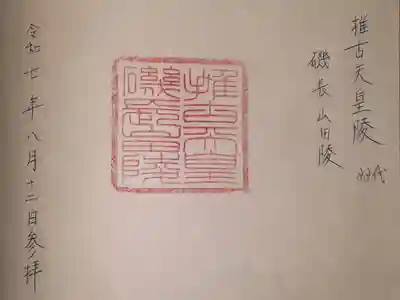 推古天皇陵
33代
磯長山田陵
推古天皇
令和七年八月十二日参拝